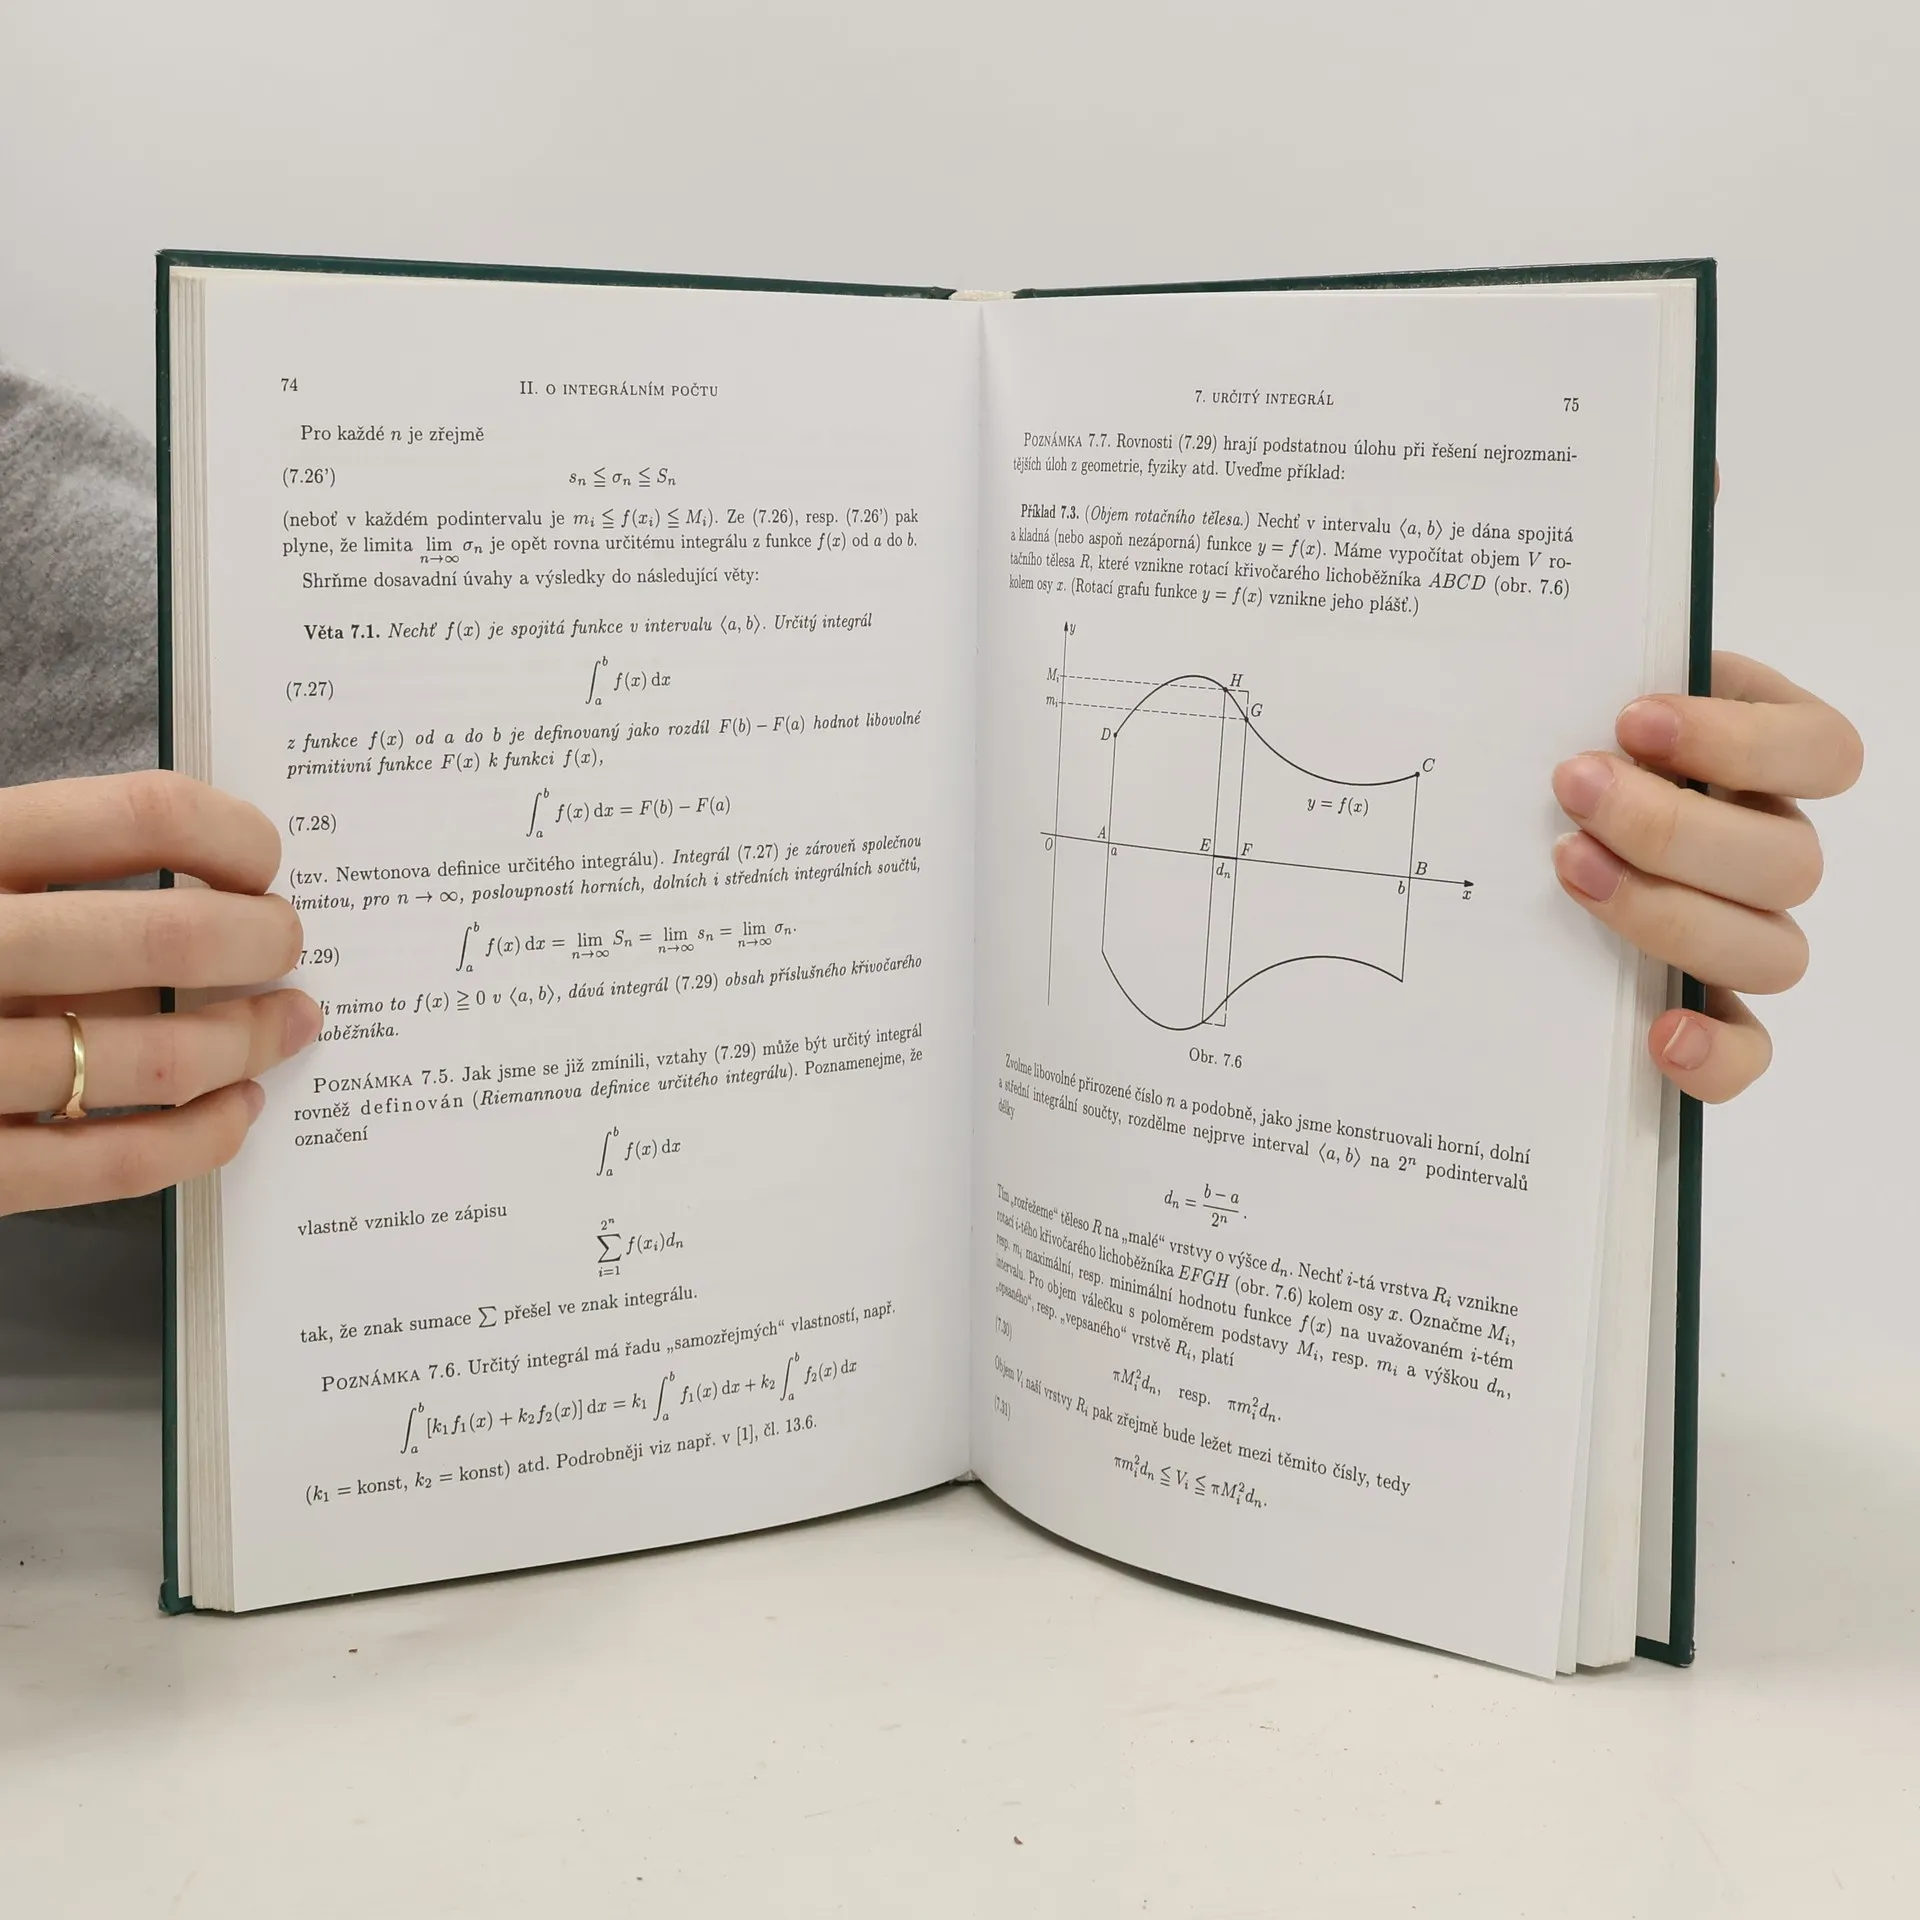 74
II. O INTEGRÁLNÍM POČTU
Pro každé n je zřejmě
(7.26’) sₙ ≦ σₙ ≦ Sₙ
(neboť v každém podintervalu je mᵢ ≦ f(xᵢ) ≦ Mᵢ). Ze (7.26), resp. (7.26’) pak
plyne, že limita lim σₙ je opět rovna určitému integrálu z funkce f(x) od a do b.
n→∞
Shrňme dosavadní úvahy a výsledky do následující věty:
Věta 7.1. Nechť f(x) je spojitá funkce v intervalu ⟨a, b⟩. Určitý integrál
(7.27) ∫ₐᵇ f(x) dx
z funkce f(x) od a do b je definovaný jako rozdíl F(b) − F(a) hodnot libovolné
primitivní funkce F(x) k funkci f(x),
(7.28) ∫ₐᵇ f(x) dx = F(b) − F(a)
(tzv. Newtonova definice určitého integrálu). Integrál (7.27) je zároveň společnou
limitou, pro n → ∞, posloupností horních, dolních i středních integrálních součtů,
7.29) ∫ₐᵇ f(x) dx = lim Sₙ = lim sₙ = lim σₙ.
n→∞ n→∞ n→∞
li mimo to f(x) ≧ 0 v ⟨a, b⟩, dává integrál (7.29) obsah příslušného křivočarého
oběžníka.
POZNÁMKA 7.5. Jak jsme se již zmínili, vztahy (7.29) může být určitý integrál
rovněž definován (Riemannova definice určitého integrálu). Poznamenejme, že
označení
∫ₐᵇ f(x) dx
vlastně vzniklo ze zápisu
2ⁿ
∑ f(xᵢ)dₙ
i=1
tak, že znak sumace ∑ přešel ve znak integrálu.
POZNÁMKA 7.6. Určitý integrál má řadu „samozřejmých“ vlastností, např.
∫ₐᵇ [k₁f₁(x) + k₂f₂(x)] dx = k₁ ∫ₐᵇ f₁(x) dx + k₂ ∫ₐᵇ f₂(x) dx
(k₁ = konst, k₂ = konst) atd. Podrobněji viz např. v [1], čl. 13.6.
7. URČITÝ INTEGRÁL
75
POZNÁMKA 7.7. Rovnosti (7.29) hrají podstatnou úlohu při řešení nejrozmani-
tějších úloh z geometrie, fyziky atd. Uveďme příklad:
Příklad 7.3. (Objem rotačního tělesa.) Nechť v intervalu ⟨a, b⟩ je dána spojitá
a kladná (nebo aspoň nezáporná) funkce y = f(x). Máme vypočítat objem V ro-
tačního tělesa R, které vznikne rotací křivočarého lichoběžníka ABCD (obr. 7.6)
kolem osy x. (Rotací grafu funkce y = f(x) vznikne jeho plášť.)
y
Mᵢ
H
mᵢ
G
D
C
y = f(x)
A
0
a
E
F
dₙ
B
b
x
Obr. 7.6
Zvolme libovolné přirozené číslo n a podobně, jako jsme konstruovali horní, dolní
a střední integrální součty, rozdělme nejprve interval ⟨a, b⟩ na 2ⁿ podintervalů
délky
dₙ = (b − a)/2ⁿ.
Tím „rozřežeme“ těleso R na „malé“ vrstvy o výšce dₙ. Nechť i-tá vrstva Rᵢ vznikne
rotací i-tého křivočarého lichoběžníka EFGH (obr. 7.6) kolem osy x. Označme Mᵢ,
resp. mᵢ maximální, resp. minimální hodnotu funkce f(x) na uvažovaném i-tém
intervalu. Pro objem válečku s poloměrem podstavy Mᵢ, resp. mᵢ a výškou dₙ,
„opsaného“, resp. „vepsaného“ vrstvě Rᵢ, platí
(7.30) πMᵢ²dₙ, resp. πmᵢ²dₙ.
Objem Vᵢ naší vrstvy Rᵢ pak zřejmě bude ležet mezi těmito čísly, tedy
(7.31) πmᵢ²dₙ ≦ Vᵢ ≦ πMᵢ²dₙ.